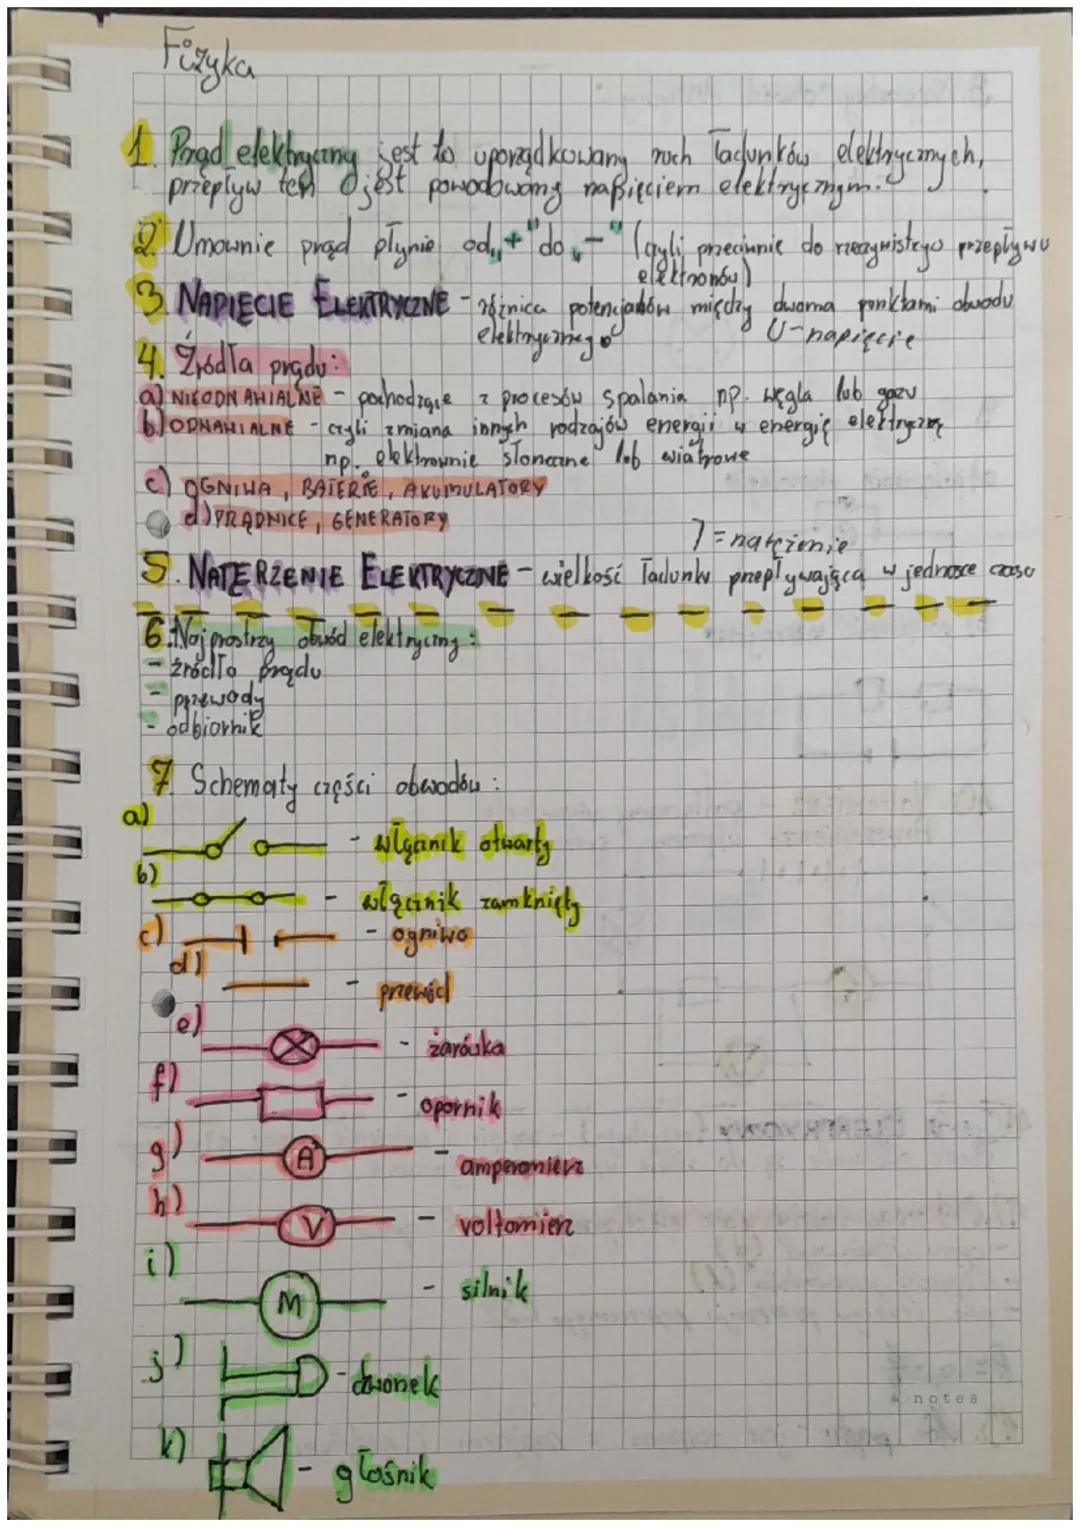 Fizyka
1. Prąd elektryczny jest to uporządkowany ruch ładunków elektrycznych,
przepływ ten jest powodowany napięciem elektrycznym.
2. Umownie prąd płynie od „+" do „-" (czyli przeciwnie do rzeczywistego przepływu
elektronów)
3. NAPIĘCIE ELEKTRYCZNE - różnica potencjałów między dwoma punktami obwodu
elektrycznego U-napięcie
4. Źródła prądu:
a) NIEODNAWIALNE - pochodzące z procesów spalania np. węgla lub gazu
b) ODNAWIALNE - czyli zmiana innych rodzajów energii w energię elektryczną
np. elektrownie słoneczne lub wiatrowe
c) OGNIWA, BATERIE, AKUMULATORY
d) PRĄDNICE, GENERATORY
I = natężenie
5. NATĘRZENIE ELEKTRYCZNE - wielkość ładunku przepływająca w jednosce czasu
6. Najprostrzy obwód elektryczny:
- źródło prądu
- przewody
- odbiornik
7. Schematy części obwodów:
a) - włącznik otwarty
b) - włącznik zamknięty
c) - ogniwo
d) - przewód
e) - żarówka
f) - opornik
g) A - amperomierz
h) V - voltomierz
i) M - silnik
j) - dzwonek
notes
k) - głośnik